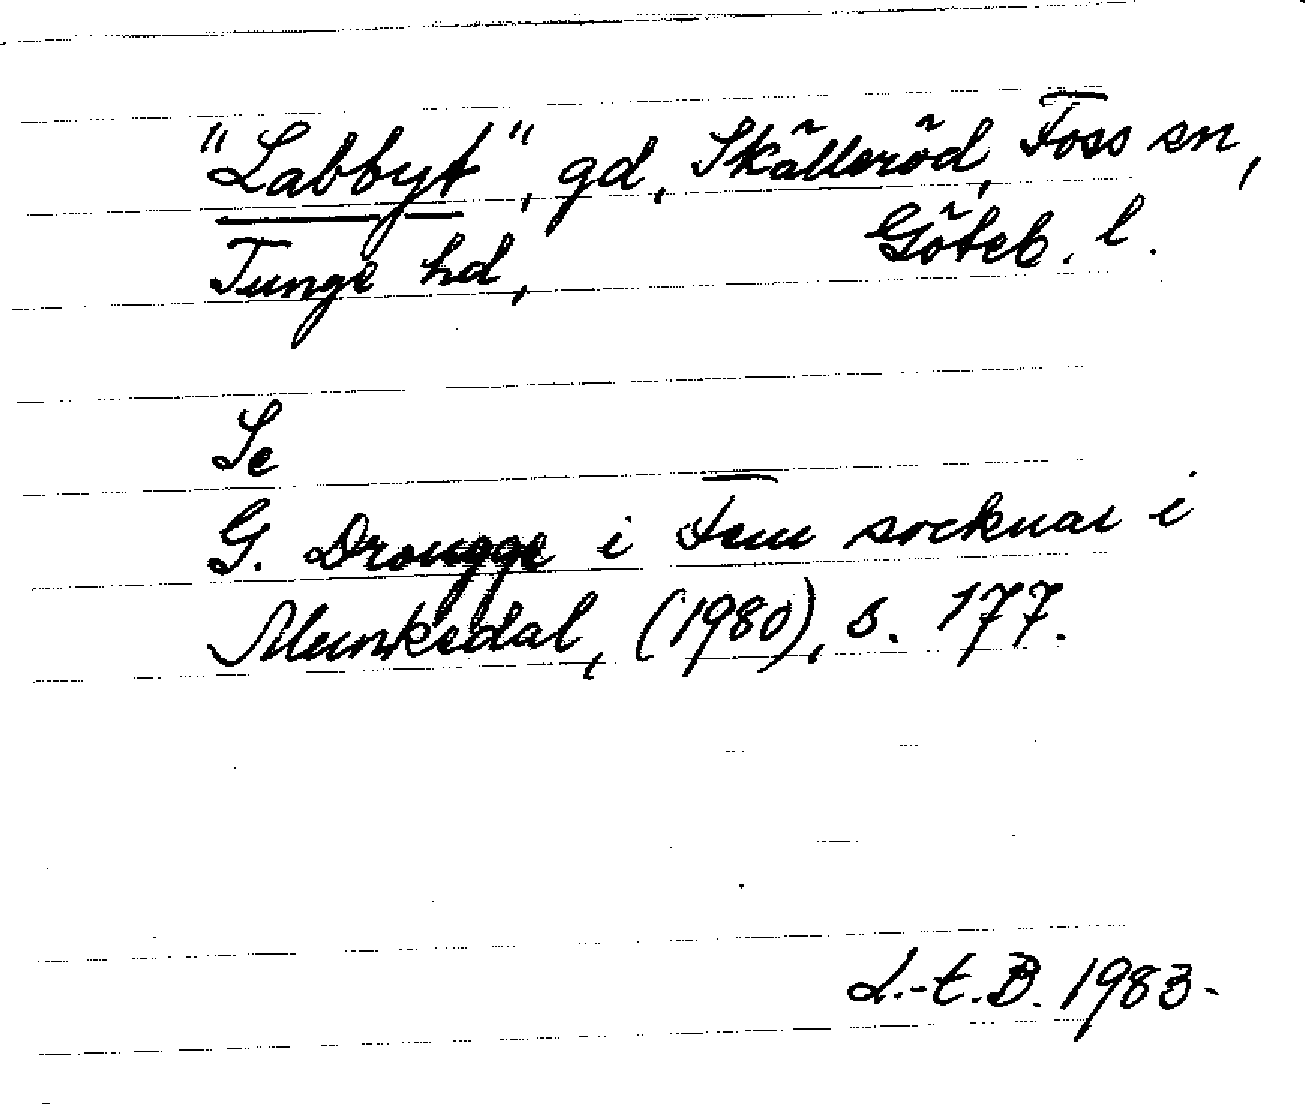 "Labbyt", gd, Skälleröd, Foss sn,
Tunge hd, Göteb. l.
Se
G. Drougge i Fem socknar i
Munkedal, (1980), s. 177.
L.-E.B. 1983.